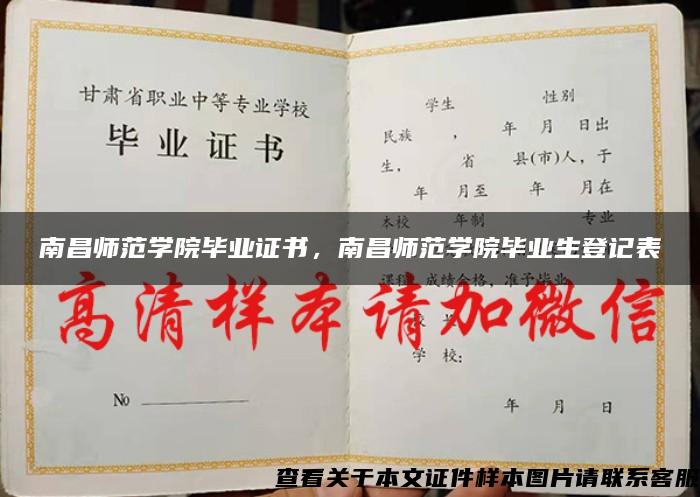 甘肃省职业中等专业学校
毕业证书
No
学生 性别
民族 , 年 月 日出
生, 省 县(市)人,于
年 月至 年 月在
本校 年制 专业
课程,成绩合格,准予毕业
学 校:
年 月 日
南昌师范学院毕业证书，南昌师范学院毕业生登记表
高清样本请加微信
查看关于本文证件样本图片请联系客服